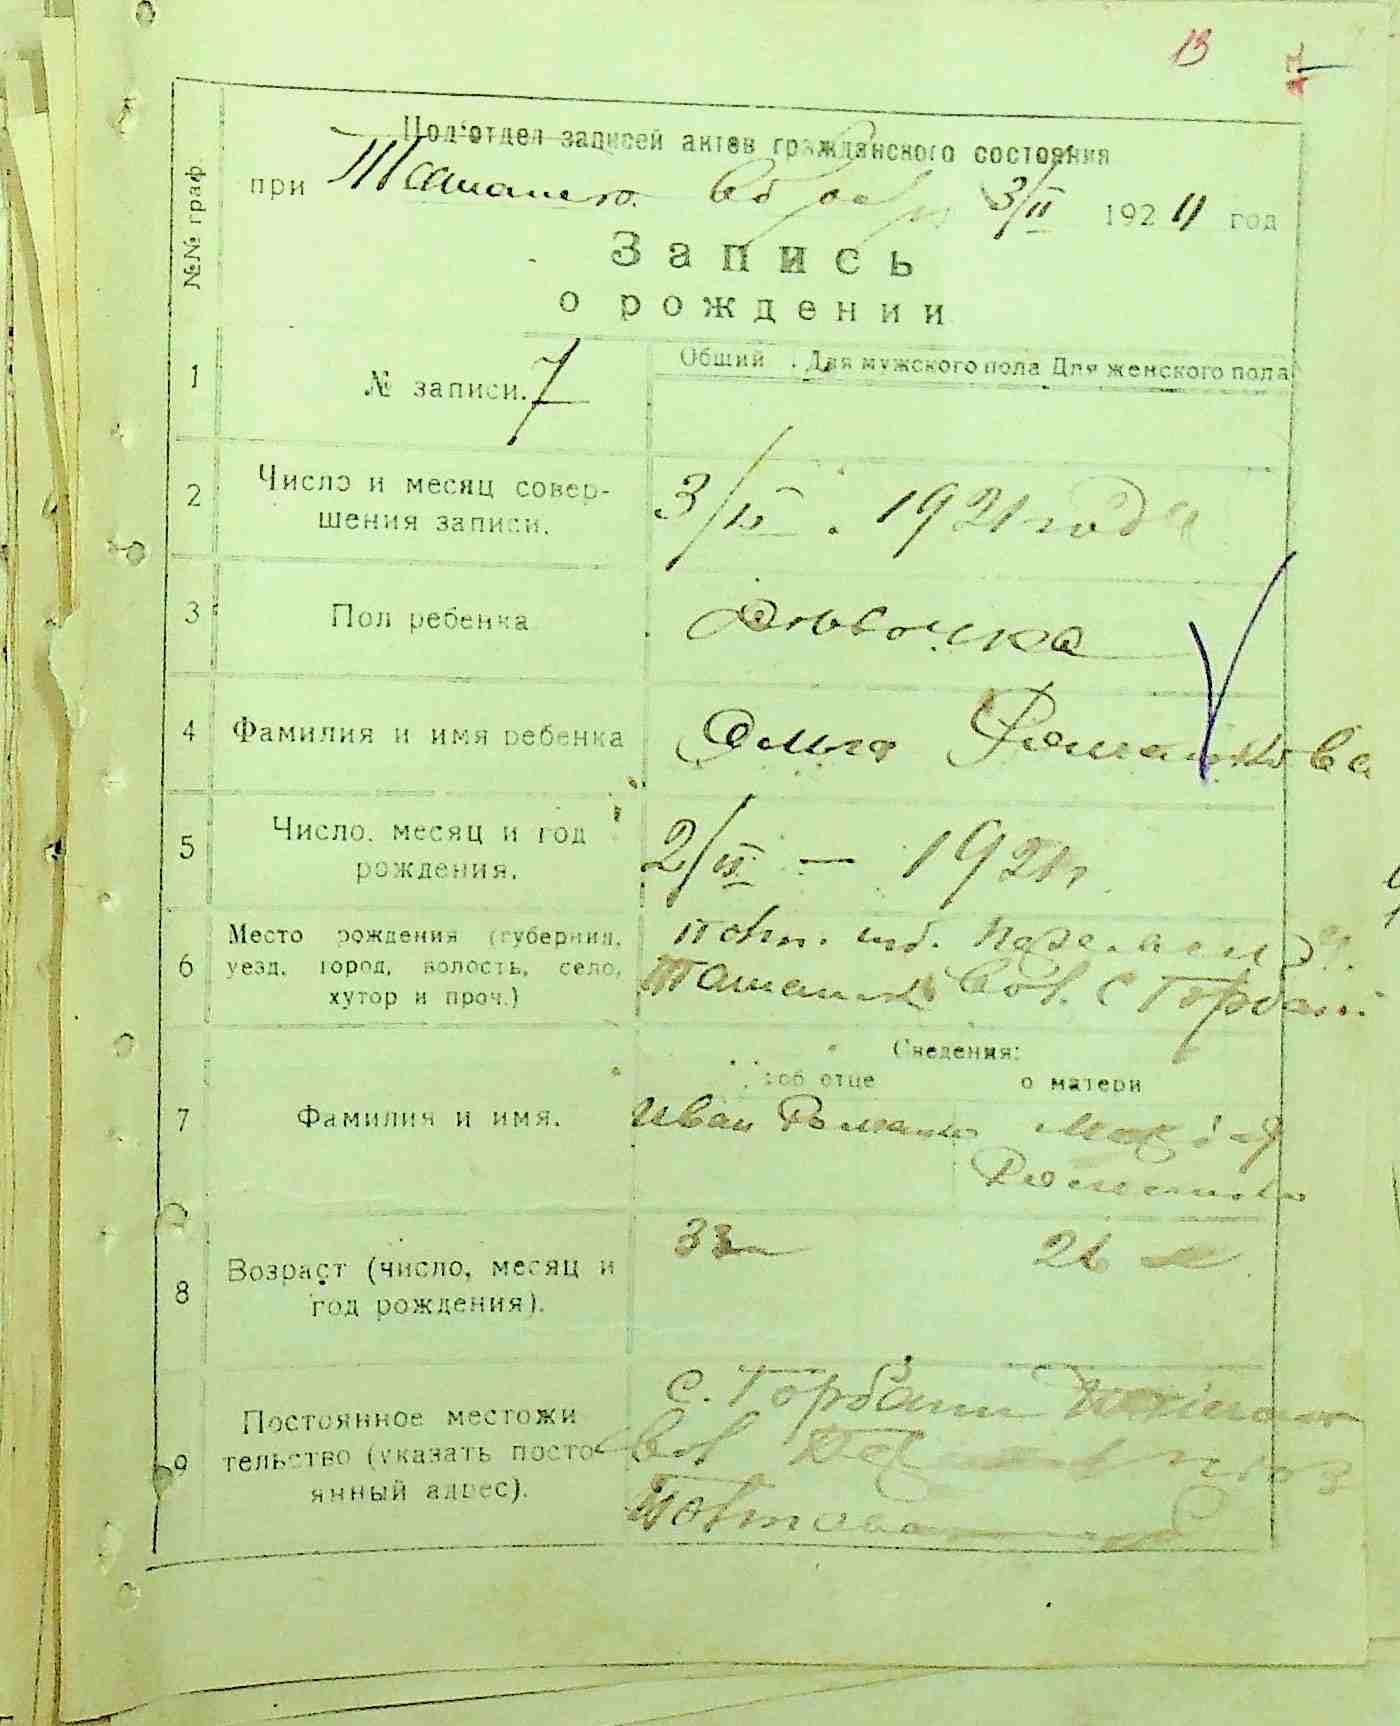 13
Под'отдел записей актов гражданского состояния
при Ташаньск. 3/II 1921 год
№№ граф.
Запись
о рождении
1 № записи. 7 Общий Для мужского пола Для женского пола
2 Число и месяц совер-
шения записи. 3/II. 1921 года
3 Пол ребенка Девочка
4 Фамилия и имя ребенка Ольга Романкова
5 Число, месяц и год
рождения. 2/II — 1921 г.
6 Место рождения (губерния,
уезд, город, волость, село,
хутор и проч.) Полт. губ. у.
Ташанск Вол. с Горбані
Сведения:
об отце о матери
7 Фамилия и имя. Иван Романко Марія
Романкова
8 Возраст (число, месяц и
год рождения). 33 26 л
9 Постоянное местожи
тельство (указать посто-
янный адрес). с. Горбани
Вол
Полтавск